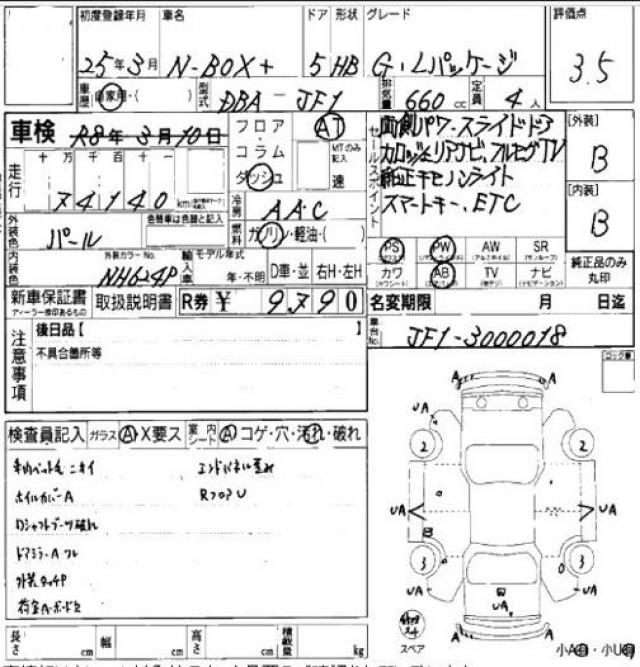 初度登録年月 車名 ドア 形状 グレード 評価点
25年3月 N-BOX+ 5 HB G・Lパッケージ 3.5
車歴 自家用・( ) 型式 DBA - JF1 排気量 660 cc 定員 4人
車検 R8年3月10日 フロア AT
コラム MTのみ記入
ダッシュ 速
セールスポイント
両側パワースライドドア
カロッツェリアナビ、フルセグTV
純正キセノンライト
スマートキー、ETC
[外装] B
[内装] B
走行 十万千百十一
74140 km
冷房 AAC
燃料 ガソリン・軽油・( )
外装色 パール 色替車は色替と記入
内装色 外装カラーNo. NH624P
輸入車 モデル年式 年・不明 D車・並 右H・左H
PS PW AW SR
(パワステ) (パワーウィンドウ) (アルミホイル) (サンルーフ)
カワ AB TV ナビ
(カワシート) (エアバック) (ナビゲーション)
純正品のみ丸印
新車保証書 取扱説明書 R券 ¥ 9790
ディーラー捺印あるもの
名変期限 月 日迄
車台No. JF1-3000018
注意事項
後日品【 】
不具合箇所等
検査員記入 ガラス A・X要ス 室内シート A コゲ・穴・汚れ・破れ
車内ペット毛 ニオイ エンドパネル歪み
ホイルカバーA RフロアU
ロシャフトブーツ破れ
ドアミラーAワレ
外装タッチP
荷室A・ボードズ
ロック車
A A
UA
2 2
UA UA
3 3
UA UA
UA
A A
スペア
小A 小U
長さ cm 幅 cm 高さ cm 積載量 kg